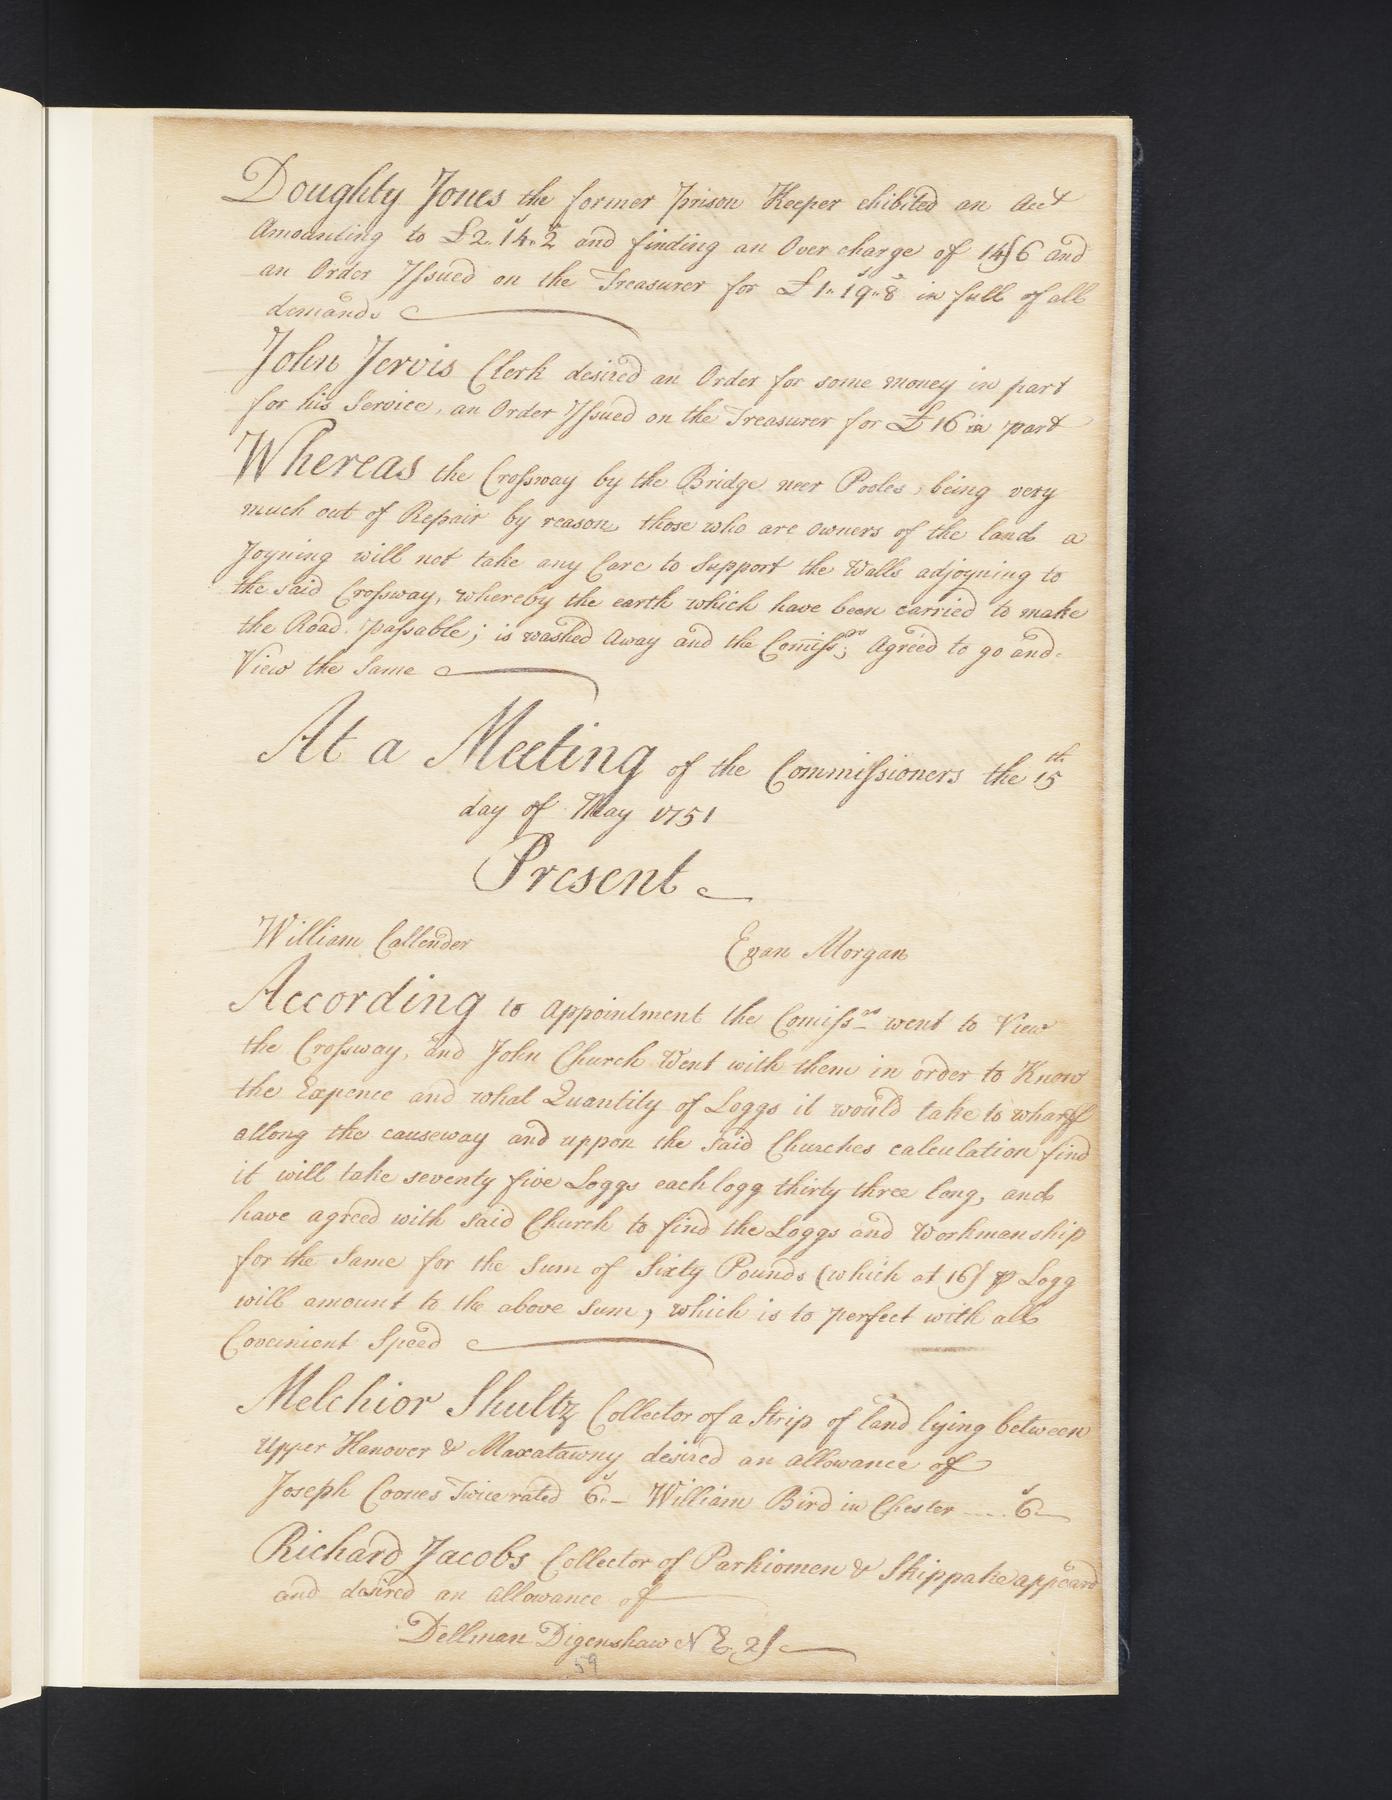 Doughty Jones the former Prison Keeper ehibited an Acct
Amounting to £2..14s..2d and finding an Over charge of 14/6 and
an Order Issued on the Treasurer for £1..19s..8d in full of all
demands
John Jervis Clerk desired an Order for some money in part
for his Service, an Order Issued on the Treasurer for £16 in part
Whereas the Crossway by the Bridge neer Pooles, being very
much out of Repair by reason those who are owners of the land a
Joyning will not take any Care to Support the Walls adjoyning to
the said Crossway, whereby the earth which have been carried to make
the Road passable; is washed Away and the Comissrs; Agreed to go and
View the Same
At a Meeting of the Commissioners the 15th
day of May 1751
Present
William Callender Evan Morgan
According to Appointment the Comissrs went to View
the Crossway, and John Church Went with them in order to Know
the Expence and what Quantity of Loggs it would take to wharff
allong the causeway and uppon the said Churches calculation find
it will take seventy five Loggs each logg thirty three long, and
have agreed with said Church to find the Loggs and Workmanship
for the Same for the Sum of Sixty Pounds (which at 16/ ⅌ Logg
will amount to the above Sum, which is to perfect with all
Covenient Speed
Melchior Shultz Collector of a Strip of land lying between
Upper Hanover & Maxatawny desired an allowance of
Joseph Coones Twice rated 6s.. – William Bird in Chester .... 6s
Richard Jacobs Collector of Parkiomen & Skippake appeard
and desired an allowance of
Dellman Digenshaw N E. 2/
59